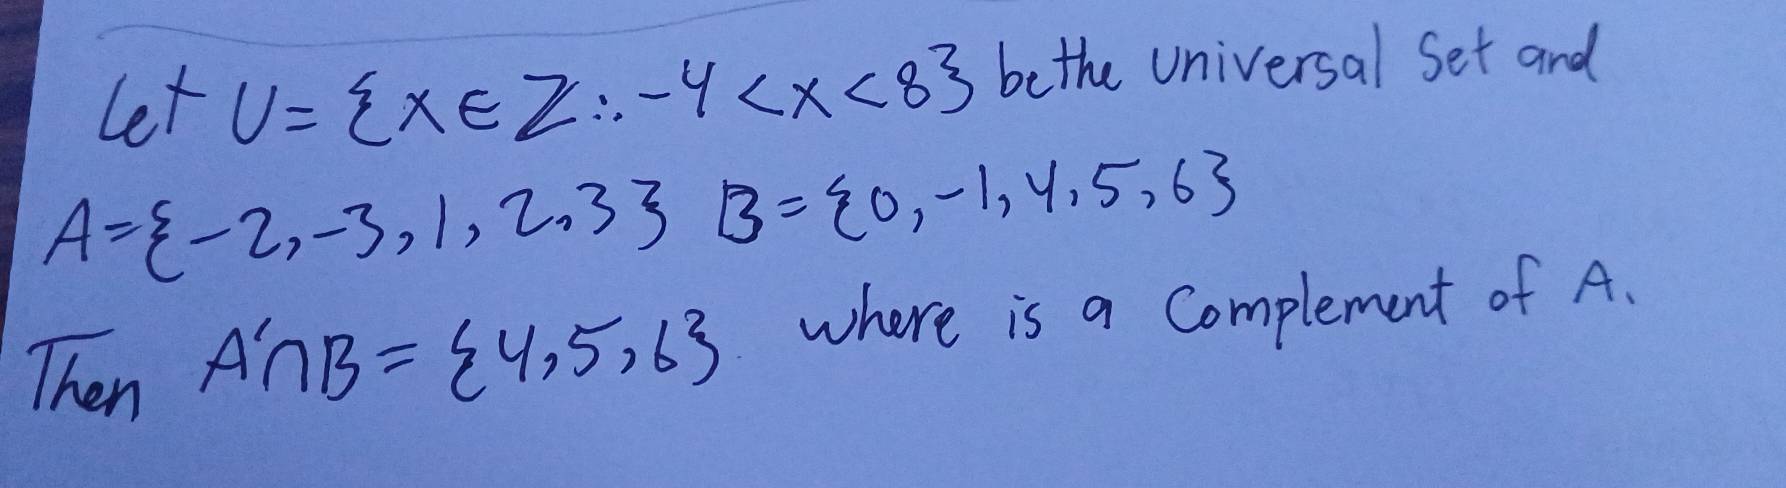 Let U = {x ∈ Z : . -4 < x < 8} be the Universal Set and
A = {-2, -3, 1, 2, 3} B = {0, -1, 4, 5, 6}
Then A' ∩ B = {4, 5, 6}. where is a Complement of A.